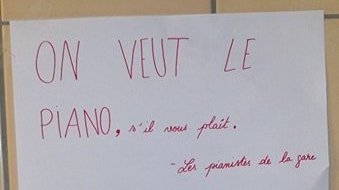 ON VEUT LE
PIANO, s'il vous plaît.
- Les pianistes de la gare